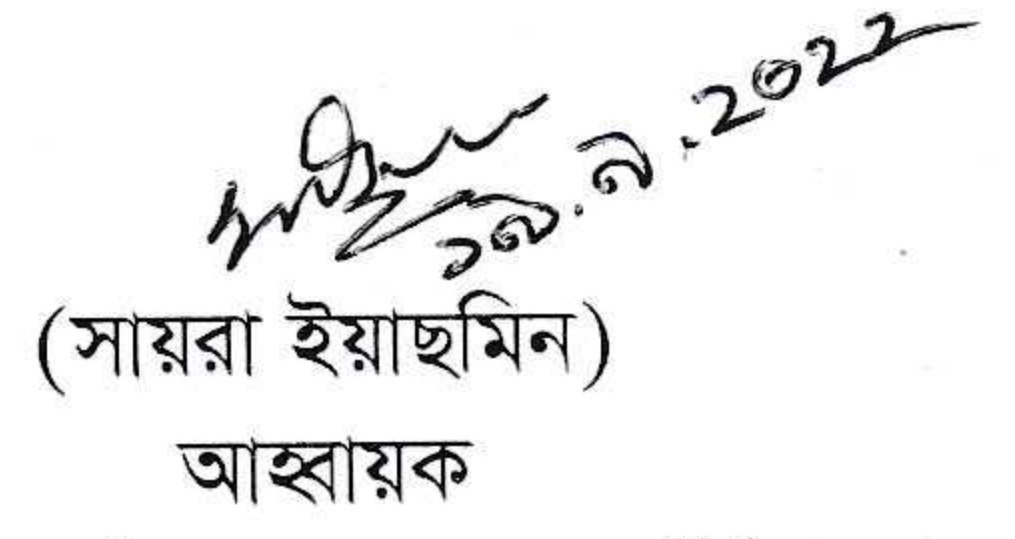 ১৯.৯.২০২২
(সায়রা ইয়াছমিন)
আহ্বায়ক